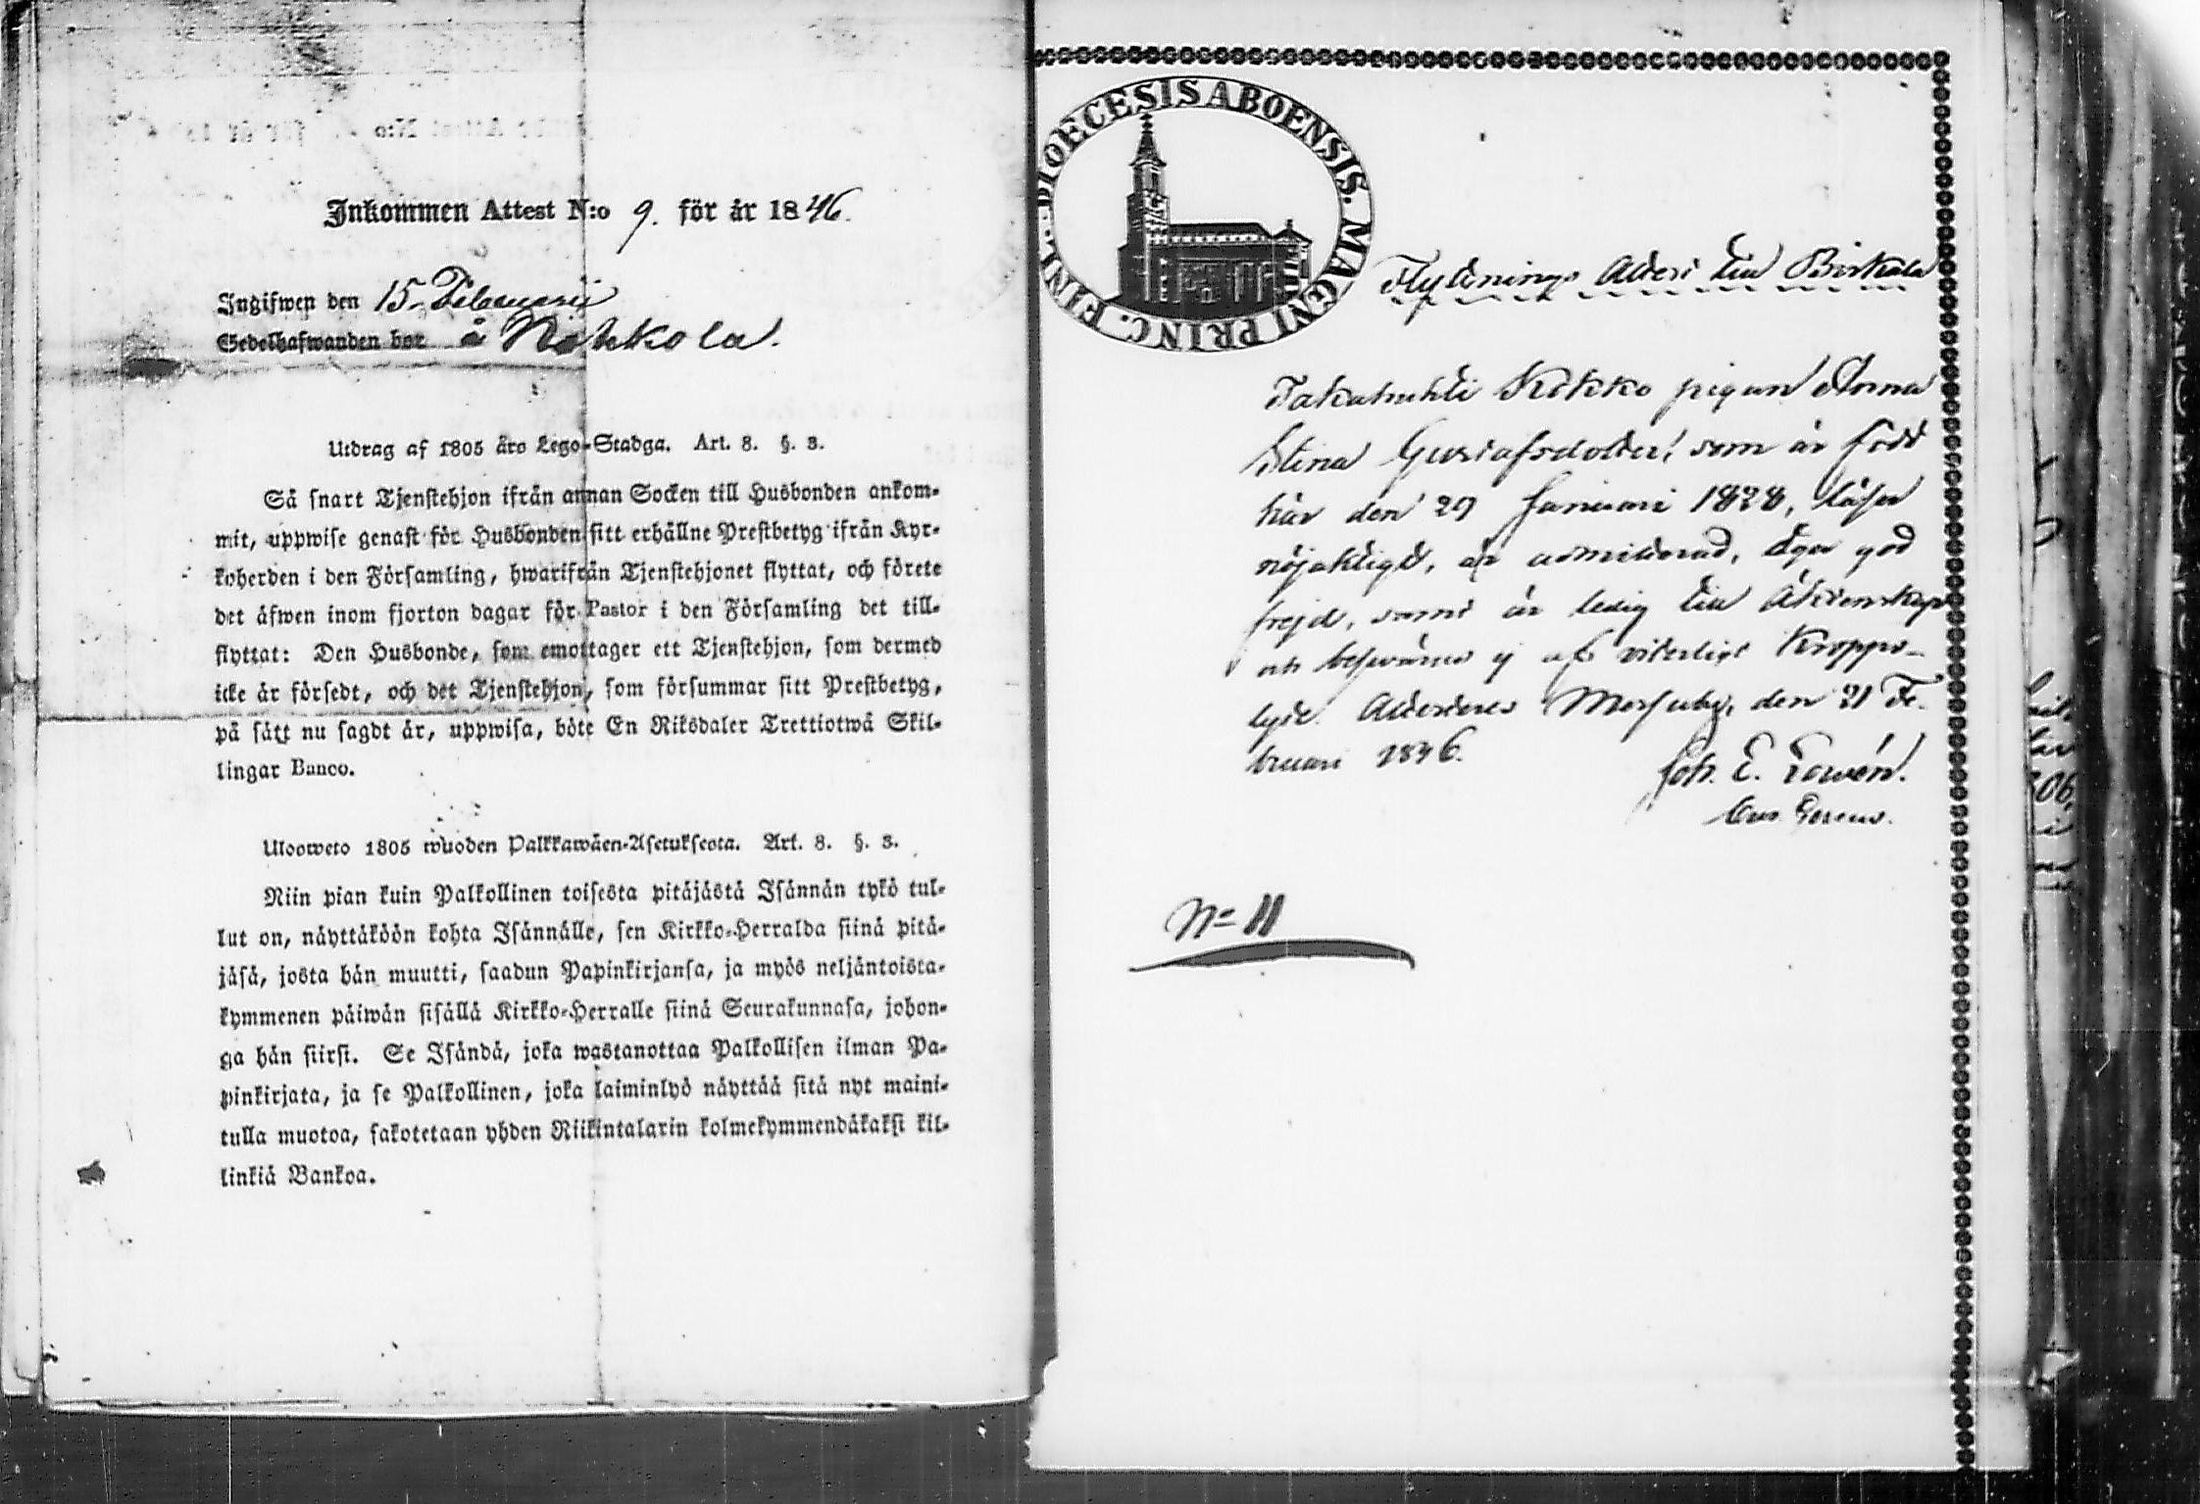 Inkommen Attest N:o 9. för år 1846.
Ingifwen den 15 Februarii
Sedelhafwanden bor å Nokkola.
Utdrag af 1805 års Lego-Stadga. Art. 8. §. 3.
Så snart Tjenstehjon ifrån annan Socken till Husbonden ankom-
mit, uppwise genast för Husbonden sitt erhållne Prestbetyg ifrån Kyr-
koherden i den Församling, hwarifrån Tjenstehjonet flyttat, och förete
det äfwen inom fjorton dagar för Pastor i den Församling det till-
flyttat: Den Husbonde, som emottager ett Tjenstehjon, som dermed
icke är försedt, och det Tjenstehjon, som försummar sitt Prestbetyg,
på sätt nu sagdt är, uppwisa, böte En Riksdaler Trettiotwå Skil-
lingar Banco.
Ulosweto 1805 wuoden Palkkawäen-Asetuksesta. Art. 8. §. 3.
Niin pian kuin Palkollinen toisesta pitäjästä Isännän tykö tul-
lut on, näyttäköön kohta Isännälle, sen Kirkko-Herralda siinä pitä-
jäsä, josta hän muutti, saadun Papinkirjansa, ja myös neljäntoista-
kymmenen päiwän sisällä Kirkko-Herralle siinä Seurakunnasa, johon-
ga hän siirsi. Se Isändä, joka wastanottaa Palkollisen ilman Pa-
pinkirjata, ja se Palkollinen, joka laiminlyö näyttää sitä nyt maini-
tulla muotoa, sakotetaan yhden Riikintalarin kolmekymmendäkaksi kil-
linkiä Bankoa.
DIOECESIS ABOENSIS. MAGNI PRINC. FINL.
Flyttnings Attest till Birkala
Kokko pigan Anna
Stina Gustafsdotter, som är född
här den 29 Januari 1828, läser
nöjaktigt, är admitterad, äger god
frejd, samt är ledig till Äktenskap
och besväras ej af viterligt Kropps-
lyte. Attesteras Messuby, den 21 Fe-
bruari 1846.
Joh. E.
No 11